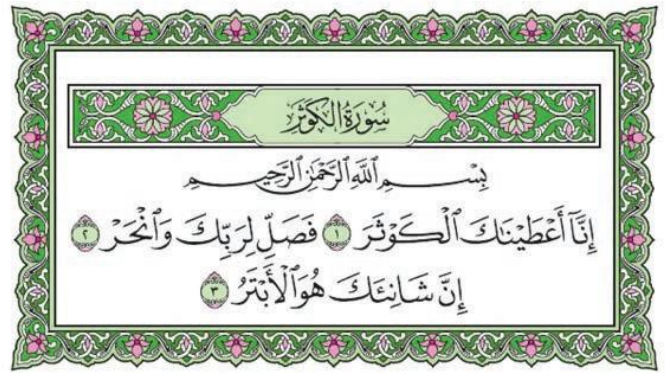 سُورَةُ الكَوثَرِ
بِسْمِ اللَّهِ الرَّحْمَٰنِ الرَّحِيمِ
إِنَّآ أَعْطَيْنَاكَ الْكَوْثَرَ ١ فَصَلِّ لِرَبِّكَ وَانْحَرْ ٢
إِنَّ شَانِئَكَ هُوَ الْأَبْتَرُ ٣